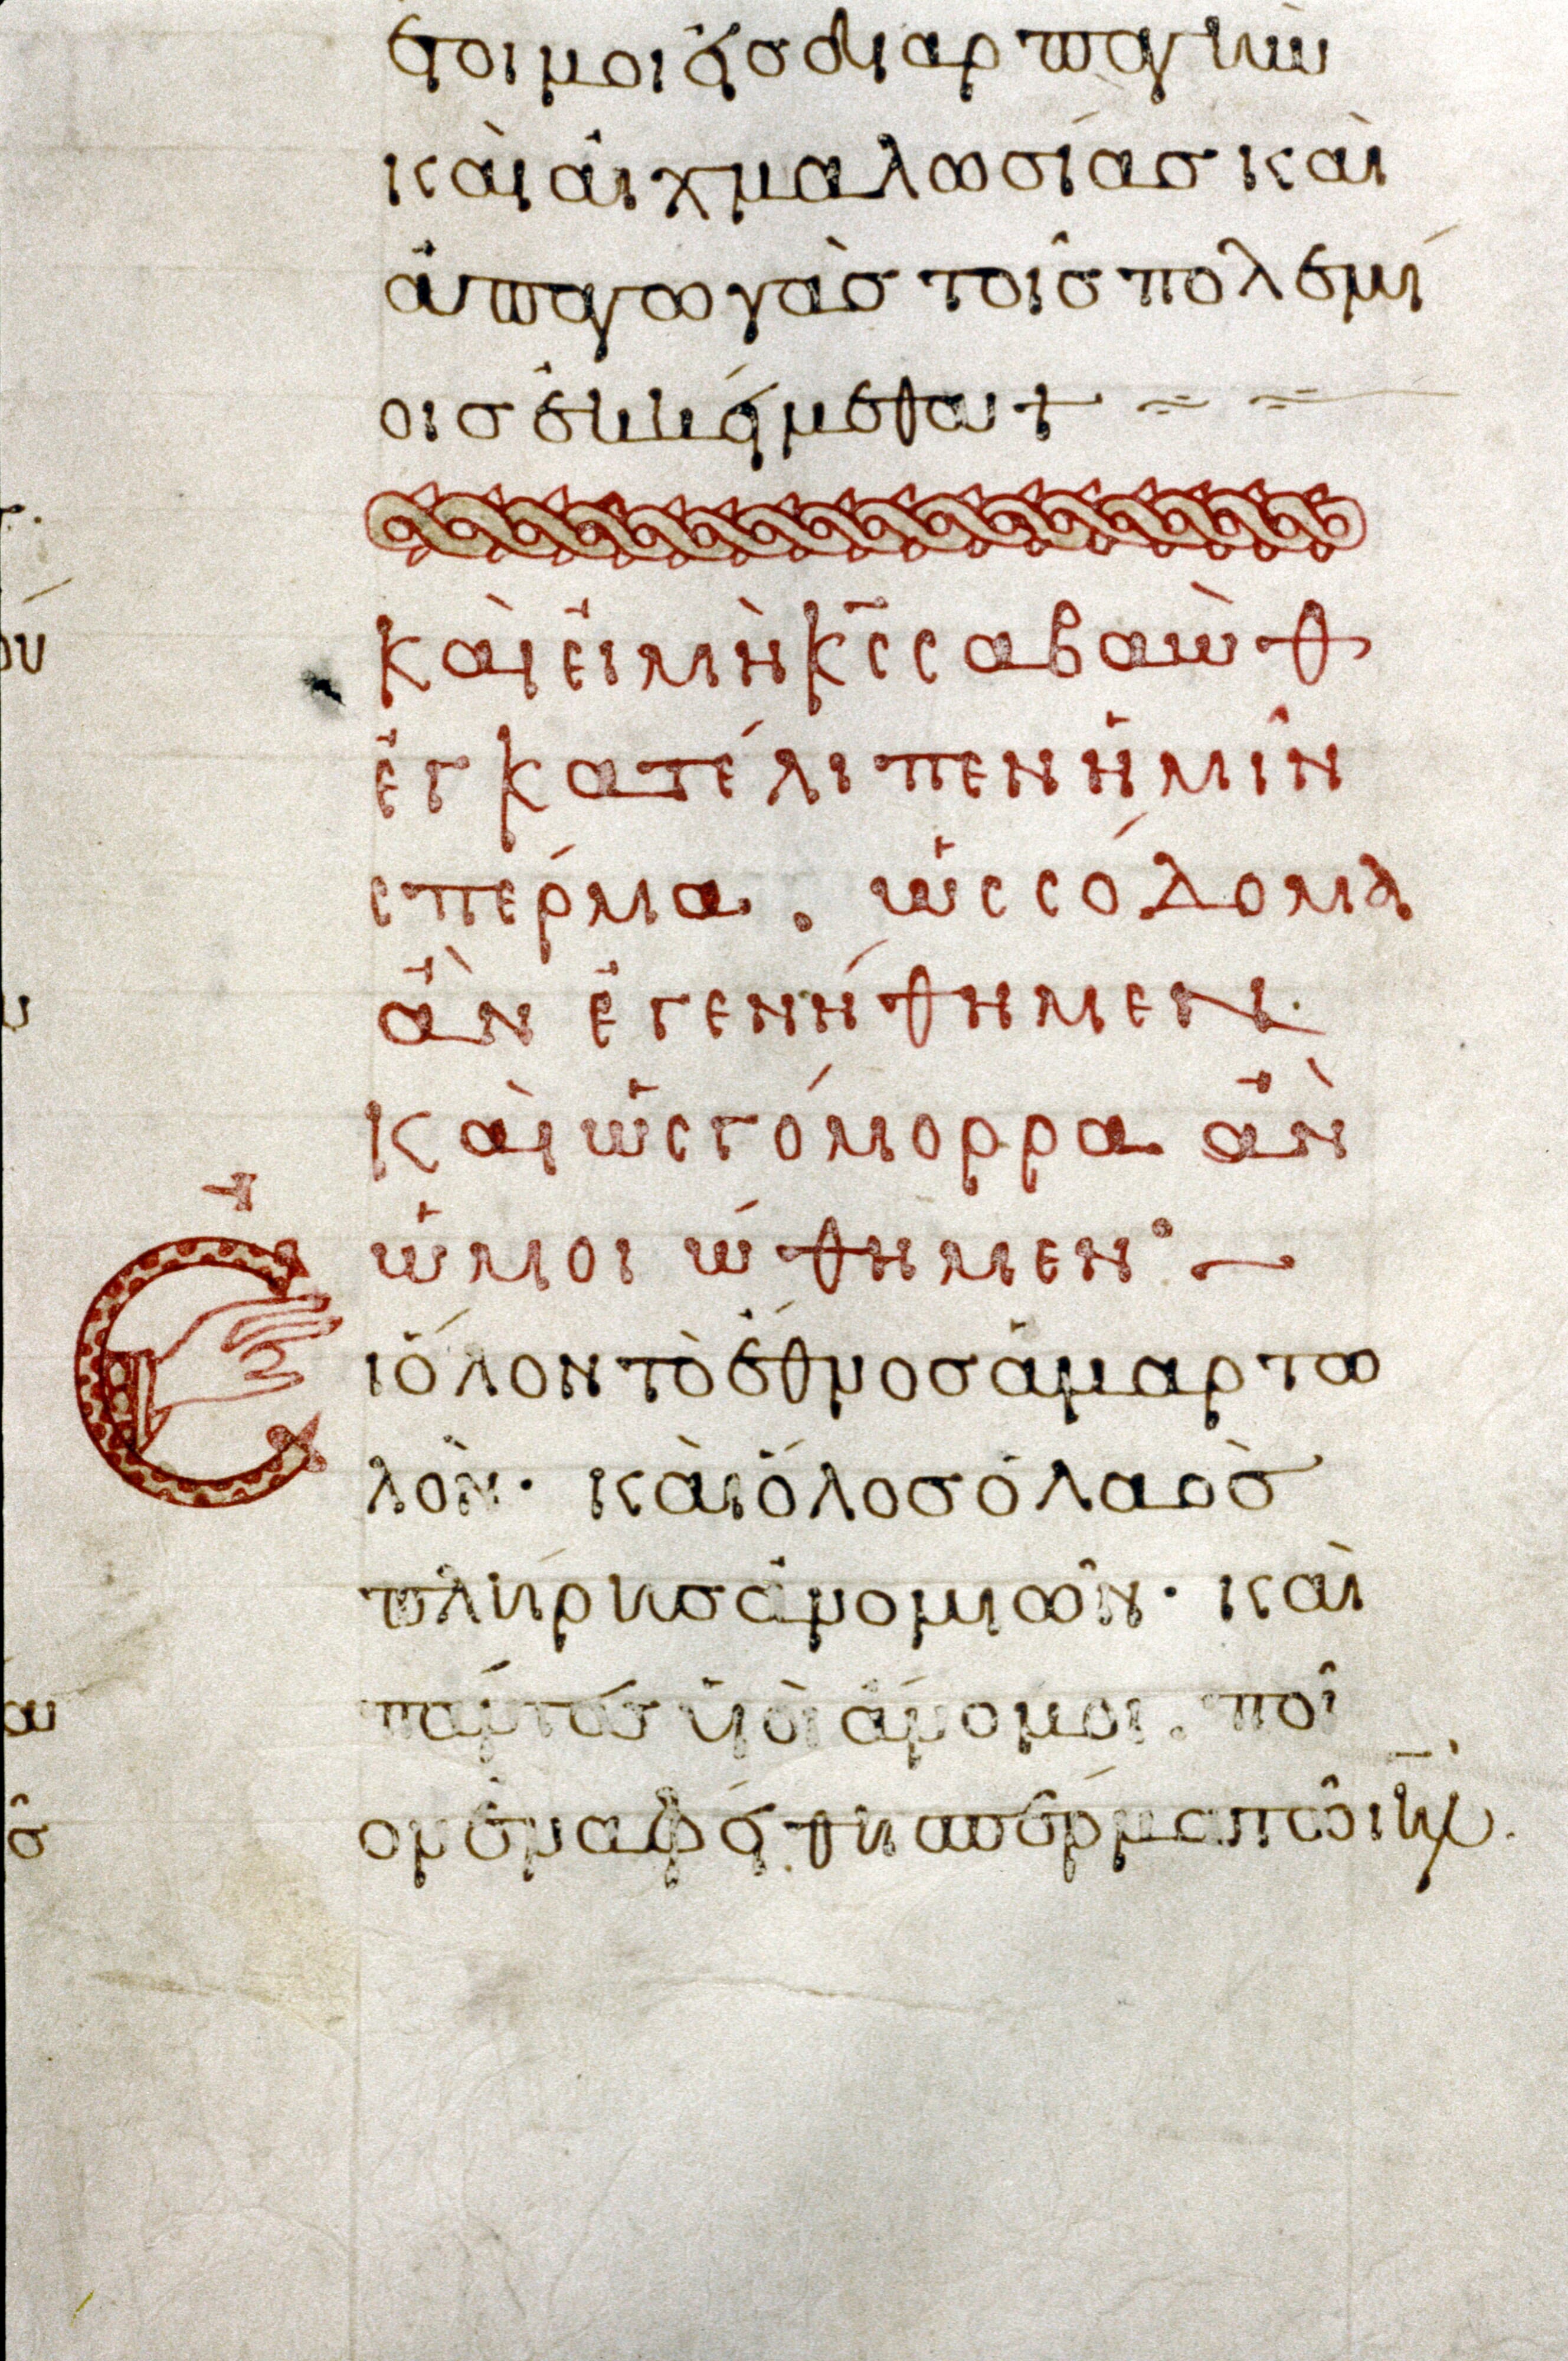 ετοιμοι εἰσ διαρπαγὴν
καὶ αἰχμαλωσίασ καὶ
ἀπαγωγὰσ τοῖσ πολεμί
οισ ἐκκείμεθα +
καὶ εἰ μὴ κ̅ς̅ σαβαὼθ
ἐγκατέλιπεν ἡμῖν
σπέρμα . ὡς σόδομα
ἂν ἐγενήθημεν.
καὶ ὡς γόμορρα ἂν
ὡμοιώθημεν
Εἰ ὅλον τὸ ἔθνοσ ἁμαρτω
λὸν· καὶ ὅλοσ ὁ λαὸσ
πλήρησ ἀνομιῶν· καὶ
πάντεσ υἱοὶ ἄνομοι. ποῖ
ον ἐναφείθη σπέρμα τῶ ι̅η̅λ̅.